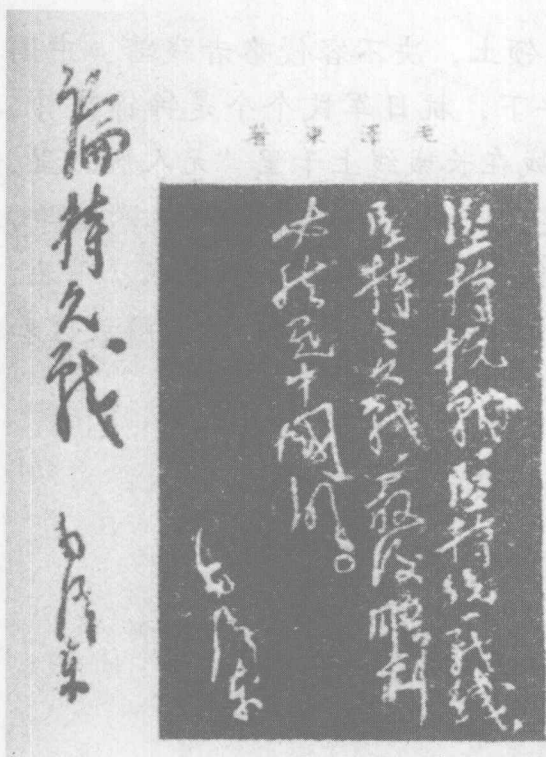 論持久戰
毛澤東
毛澤東著
堅持抗戰,堅持統一戰綫,
堅持〻久戰,最後勝利
必然是中國的。
毛澤東